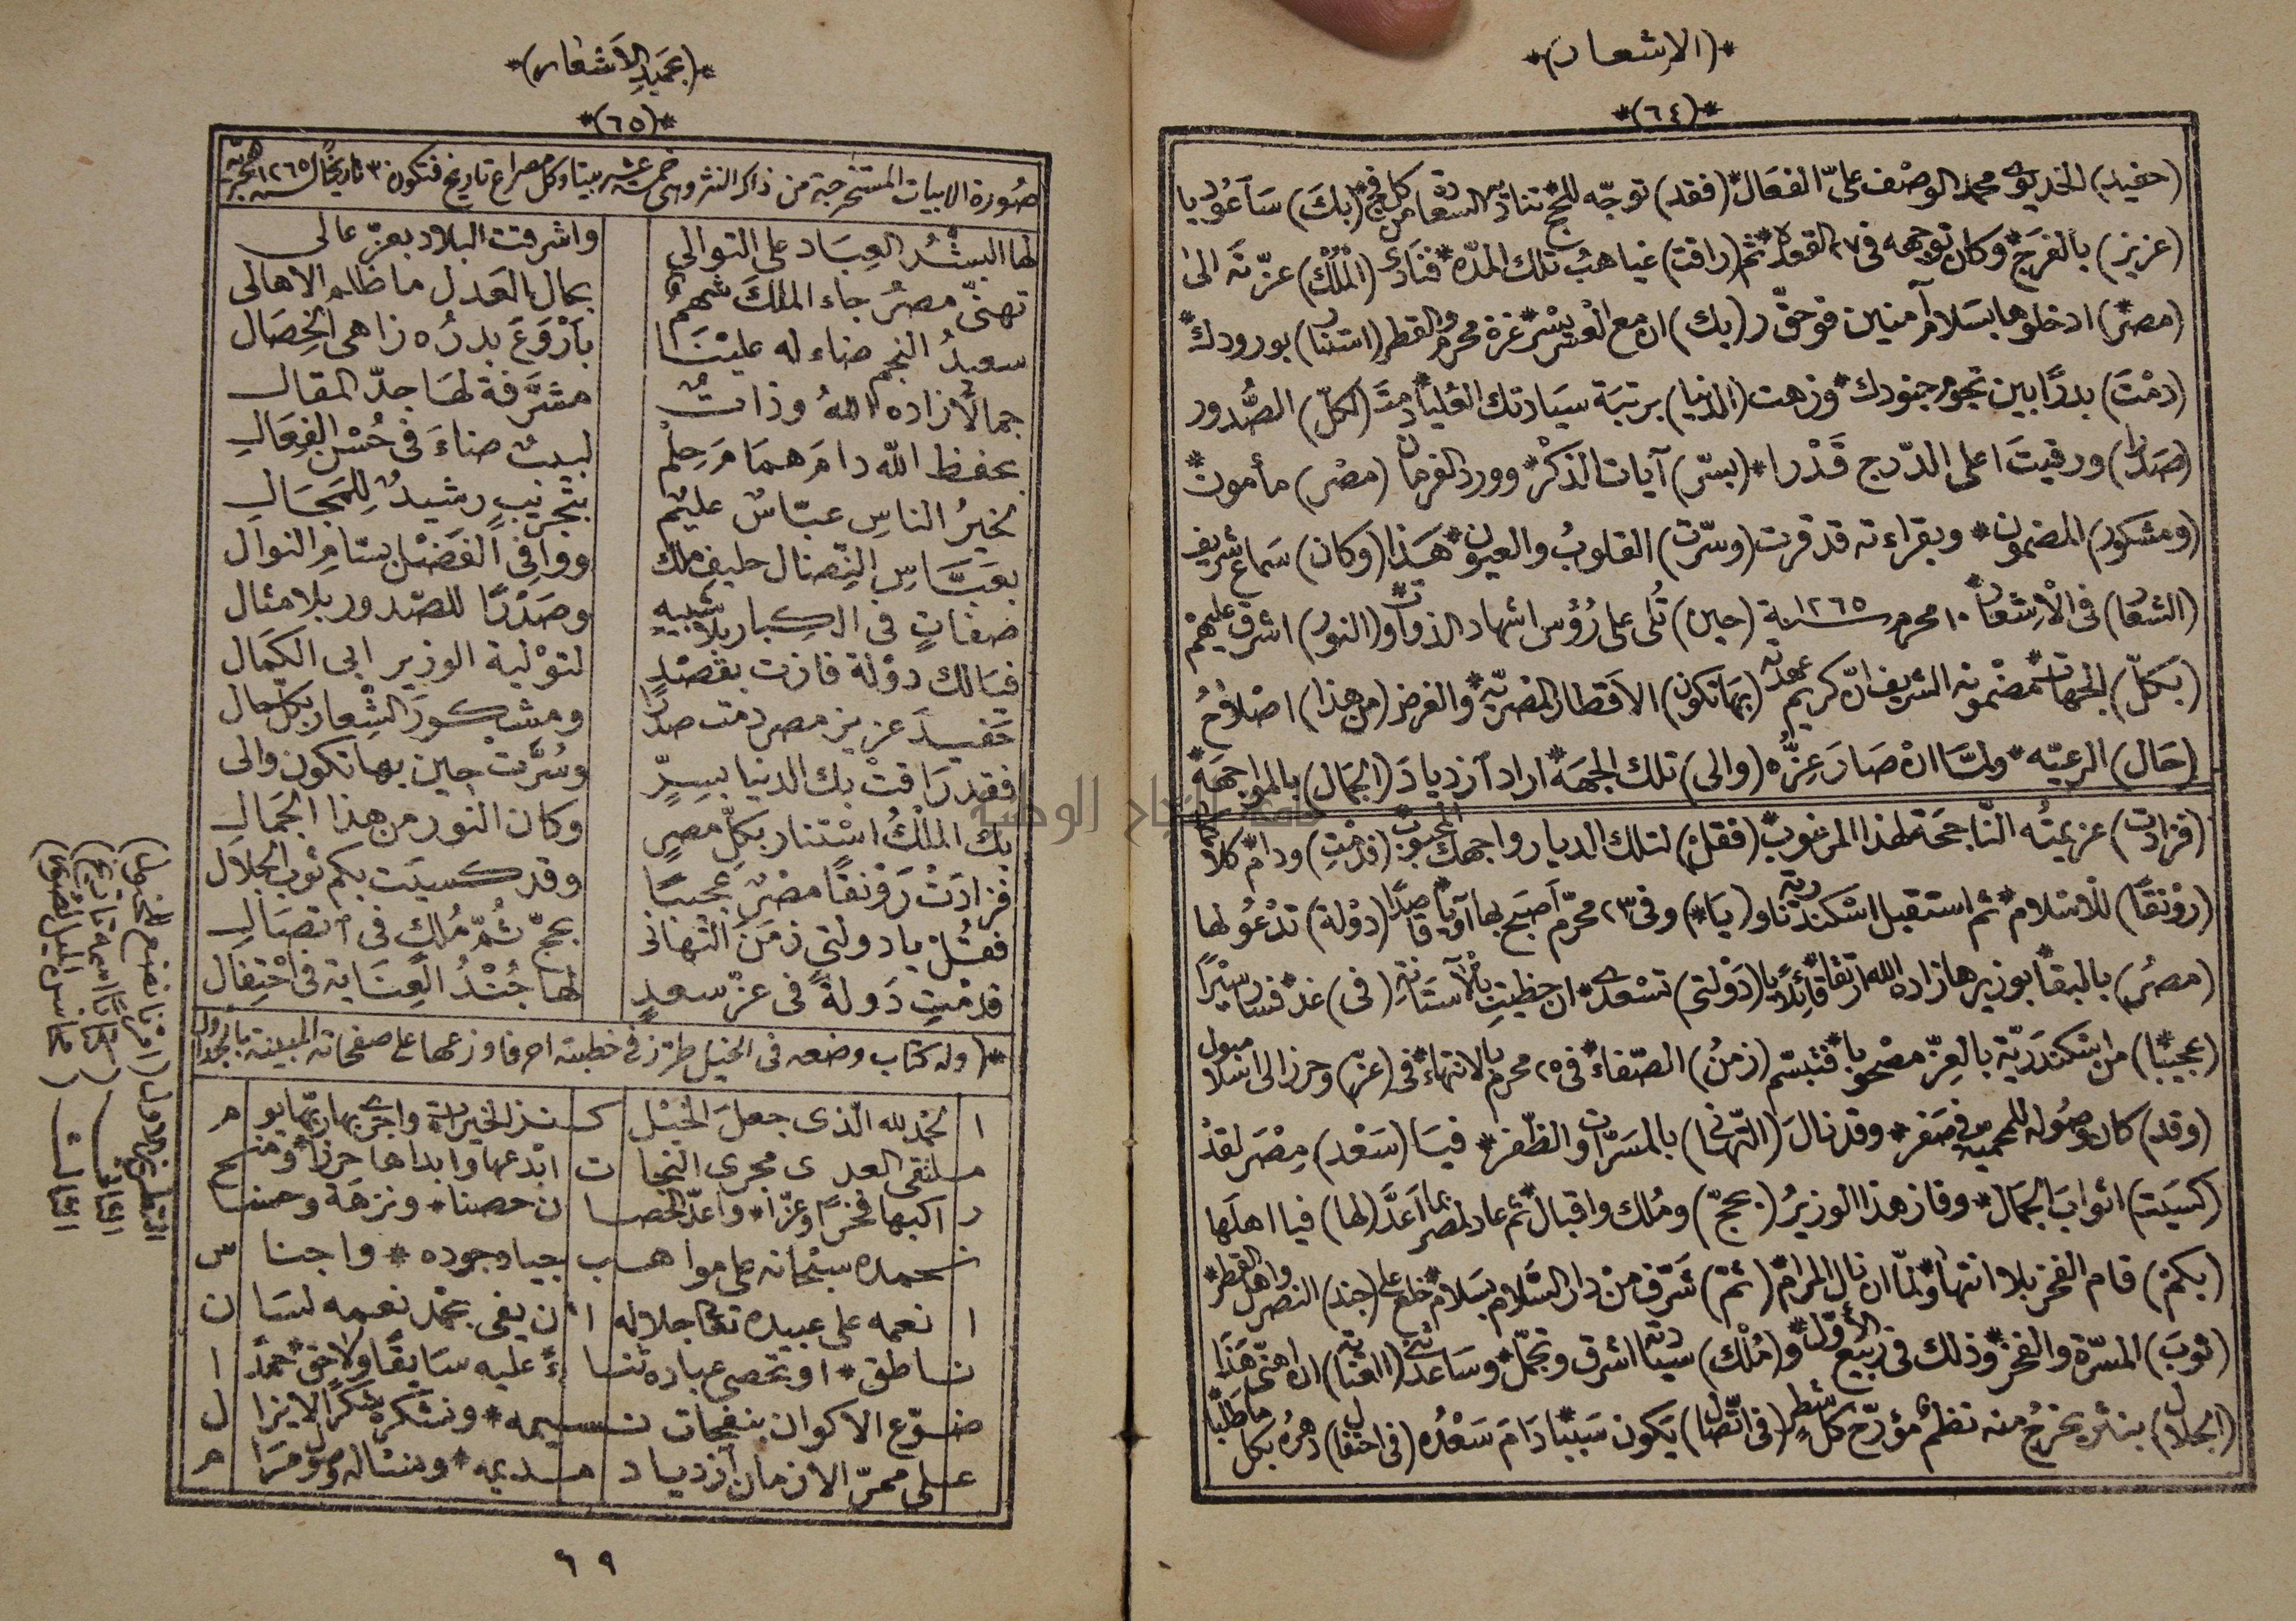 *(الاشعار)*
*(٦٤)*
(حفيد) الخديوى محمد الوصف علىّ الفعَال* (فقد) توجّه للحج تناديه السعادة من كل فج* (بكَ) سَاَعُود يا
(عزيز) بالفَرَج* وكان توجهه فى ٢٧ القعدة* ثم (راقت) غياهبُ تلك المدّه* فنَادى (الْمُلْك) عزّته الى
(مصر*) ادخلوها بسَلام آمنين فوحقّ ر(بك) ان مع العسر يسْر* غزة محرم والقطر (استنار) بورودك*
(دمْتَ) بدرًا بين نجوم جنودك* وزهت (الدنيا) برتبَة سيَادتك العُليا* دمتَ (لكلّ) الصُّدور
(صَدرًا) ورقيتَ اعلى الدّرج قَدْرا* (بسّر) آيات الذكْر* وورد الفرمان (مصْر) مأمون*
(ومشكور) المضمون* وبقراءته قد قرت (وسّرت) القلوبُ والعيون* هَذا (وكان) سَماع شريف
(الشعار) فى الْاِشعار* ١٠ محرم سنة ١٢٦٥ (حين) تُلى على رُؤس اشهاد الذوات* و(النور) اشرق عليهمْ
(بكلّ) الجهات* مضمونه الشريف انّ كريم عهدته (بها تكون) الاقطار المصْريّه* والغرض (من هذا) اصْلاحُ
(حَال) الرعيّه* ولمَّا انْ صَارَ عِزُّه (والى) تلك الجهَة* اراد آزديادَ (الجَمال) بالمواجهَة*
(فزادت) عزيمتُه النّاجحَة لهذا المرغوب* (فقلْ) لتلك الديار واجهك المحبوب* (قدُمْتِ) ودام كلامكم
(روْنقًا) للْاسْلام* ثم استقبل اسْكندريّتنا و(يَا*) وفى ٢٣ محرّم اَصبَح بها آويًا* قاصدًا (دوْلة) تدْعُو لها
(مصْرُ) بالبقا* بوزيرها زاده الله ارتقا* قائلًا يا (دَوْلتى) تسْعدى* ان حظيتِ بالْآستَانة (فى) غد* فسَار سيْرًا
(عجيبًا) من اسْكندَريّة بالعزّ مصْحوبا* فتبسّم (زمنُ) الصّفاء* فى ٢٥ محرم بالانتهاء* فى (عزّ) وحرز الى اسلامبول
(وقد) كان وصُوله للمحميه فى صَفر* وقد نالَ (التهانى) بالمسَرّات والظّفر* فيَا (سَعْد) مِصْرَ لقدْ
(كسيَت) اثوابَ الجمَال* وفاز هذا الوزيرُ (بحجّ) ومُلك واقبال* ثم عاد لمصر بما اَعدَّ (لها) فيا اهلَها
(بكمْ) قام الفخر بلا انتها* ولمّا ان نال المرام* (ثمّ) شَرّف منْ دار السَّلام بسَلام* خلع على (جند) النصر واهل القطر*
(ثوبَ) المسرّة والفخر* وذلك فى ربيع الأوّل* و(مُلْك) سيادته اشرق وتجمّل* وسَاعدتْنى (العناية) ان اهنّى هَذَا
(الجلال) بنثر يخرُج منه نظم* مؤرّخ كل شطرٍ (فى اتّصال) يَكون سَببًا* دَامَ سَعْدُه (فى احتفال) دهره بكل ما طلبًا*
*(بحَميدِ الأشعار)*
*(٦٥)*
صُورة الابيات المستخرجة من ذاك النثر وهى خمسة عشر بيتا وكل مصراع تاريخ فتكون ٣٠ تاريخًا لسنة ١٢٦٥ هجرية
لها البشْرُ العبَاد على التوالى واشرقت البلاد بعزّ عالى
تهنّى مصرُ جاء الملكَ شهمٌ بحال العَدل ما ظلم الاهالى
سعيدُ النجم ضاء له علينَا بأرْوَعَ بدرُه زاهى الخِصَال
جمالًا زاده اللهُ وذاتٌ مشرَّفة لهَا جدّ المقال
بحفظ الله دامَ همَامَ حِلم لبيبٌ ضاءَ فى حُسْن الفِعَال
بخيرُ الناسِ عبّاسٌ عليمٌ بتجْريبٍ رشيدٌ لِلمجَال
بعَبَّاسِ النِّصَال حليف ملك ووافى الفَضْل بسَّام النوال
صفاتٍ فى الكبار بلا شبيهٍ وصَدْرًا للصّدور بلا مثال
فيَالك دوْلة فازت بقصْدٍ لتوْلية الوزير ابى الكمَال
حَفيدَ عزيز مصر دمتَ صدرًا ومشكورَ الشِّعار بكل حال
فقد رَاقتْ بك الدنيا بسِرٍّ وسُرَّتْ حِين بها تكون والى
بك المُلْكُ اسْتنار بكلّ مصرٍ وكان النور من هذا الجَمال
فزادَتْ رَوْنقًا مصْرٌ عجيبًا وقد كسيَت بكم ثوبَ الجلَال
فقُلْ يا دولتى زمَنَ التهانى بحجّ ثُمّ مُلكٍ فى آتصَال
قدمْتِ دَولةً فى عزّ سعدٍ لها جُنْدُ العِنَاية فى احْتِفَال
*(وله كتاب وضعه فى الخيل طرّز فى خطبته احرفا وزعها على صفحاته المبينة بالجدول)
ا لحمد لله الّذى جعلَ الخيْل كنز الخيرات* واجرى بها ربّها يوم
ملتقى العدى مجرى النجات ابْدعها وابداها حرزا* ومنح
راكبها فخرًا وعزّا* واعدّ الخصان حصنا* ونزهة وحسنا
نحمده سبْحانه على مواهب جياد جوده* واجناس
انعمه على عبيده تعالى جلاله ان يفى بحمد نعمه لسَان
ناطق* او تحصى عباده ثناءً عليه سَابقًا ولاحق* حمدًا
ضوّع الاكوان بنفحات نسيمه* ونشكره شكرًا لا يزال
على ممرّ الازمان آزدياد مديمه* ونسْاله
٦٩